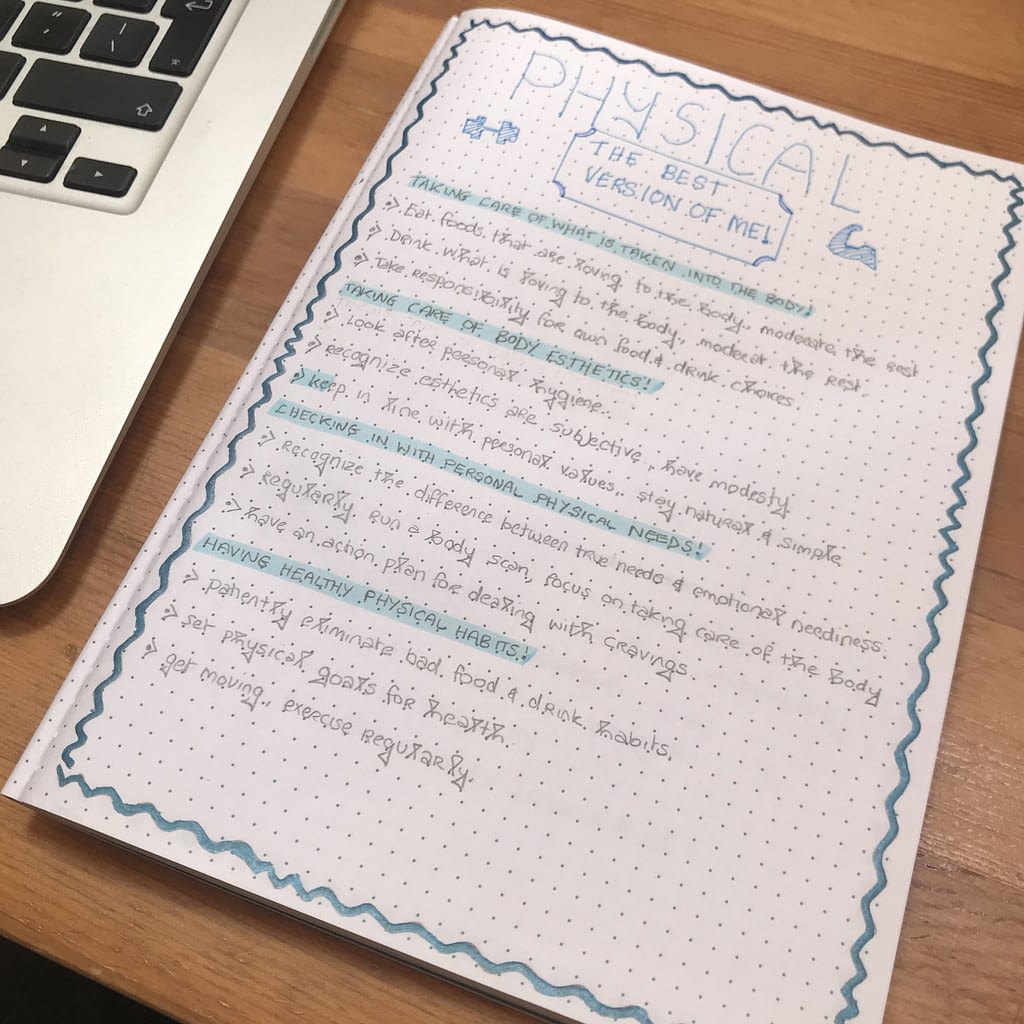 PHYSICAL
THE BEST
VERSION OF ME!
TAKING CARE OF WHAT IS TAKEN INTO THE BODY!
> Eat foods that are loving to the body, moderate the rest.
> Drink what is loving to the body, moderat the rest.
> Take responsibility for own food & drink choices
TAKING CARE OF BODY ESTHETICS!
> Look after personal hygiene.
> recognize esthetics are subjective, have modesty
> keep in line with personal values, stay natural & simple
CHECKING IN WITH PERSONAL PHYSICAL NEEDS!
> recognize the difference between true needs & emotional neediness.
> regularly run a body scan, focus on taking care of the body
> have an action plan for dealing with cravings.
HAVING HEALTHY PHYSICAL HABITS!
> patiently eliminate bad food & drink habits.
> set physical goals for health
> get moving, exercise regularly.